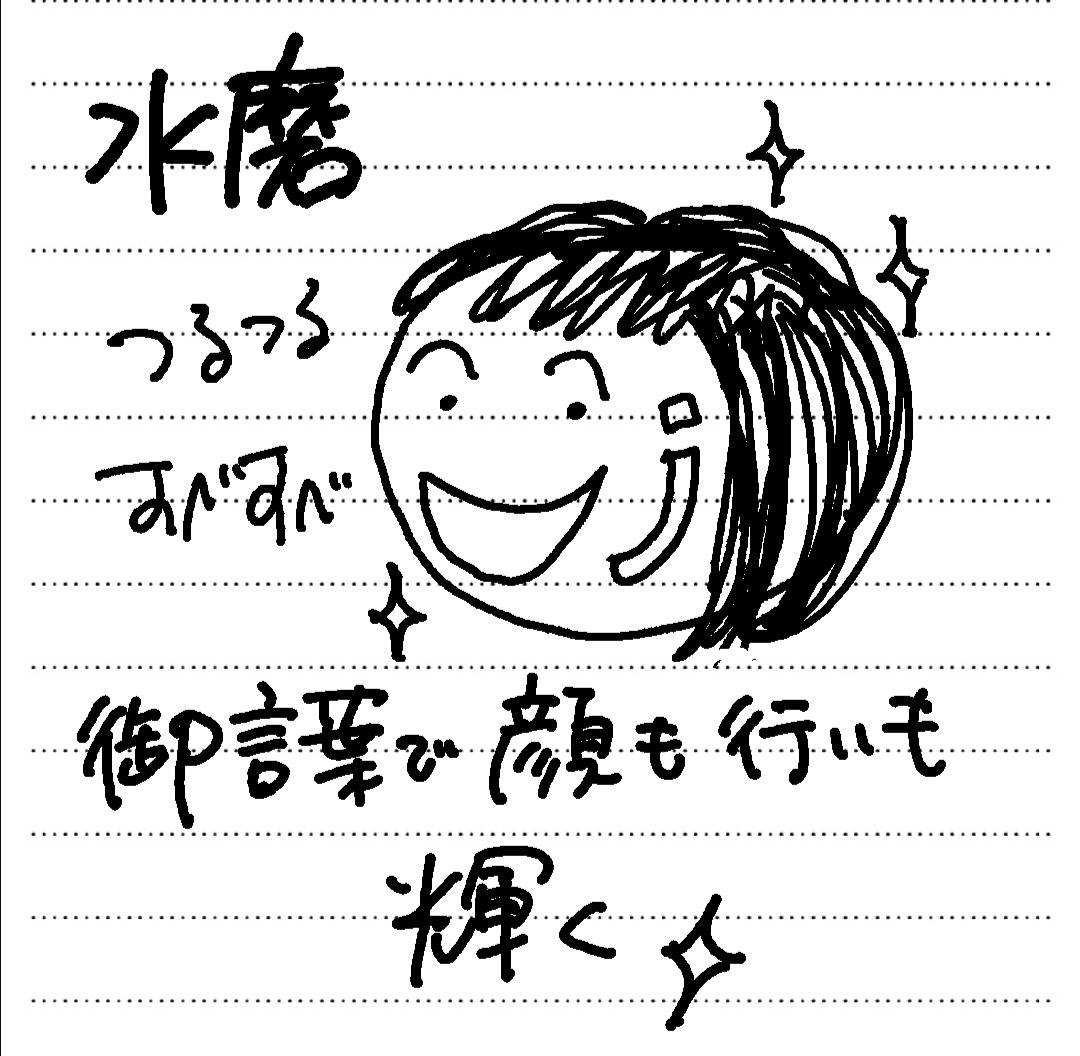 水磨
つるつる
すべすべ
御言葉で顔も行いも
輝く